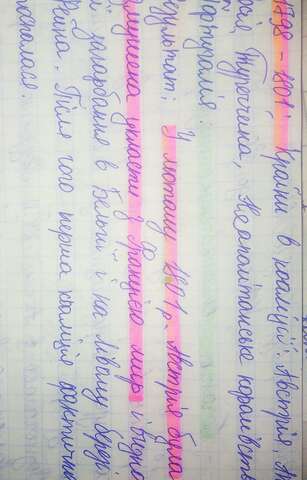 1798 - 1801: Країни в коаліції: Австрія,
Туреччина, Неаполітанське королівств
ортугалія.
зультат: У лютому 1801 р. Австрія була
змушена укласти з Францією мир і визна
загарбання в Бельгії і на лівому березі
Рейна. Після чого перша коаліція фактичн